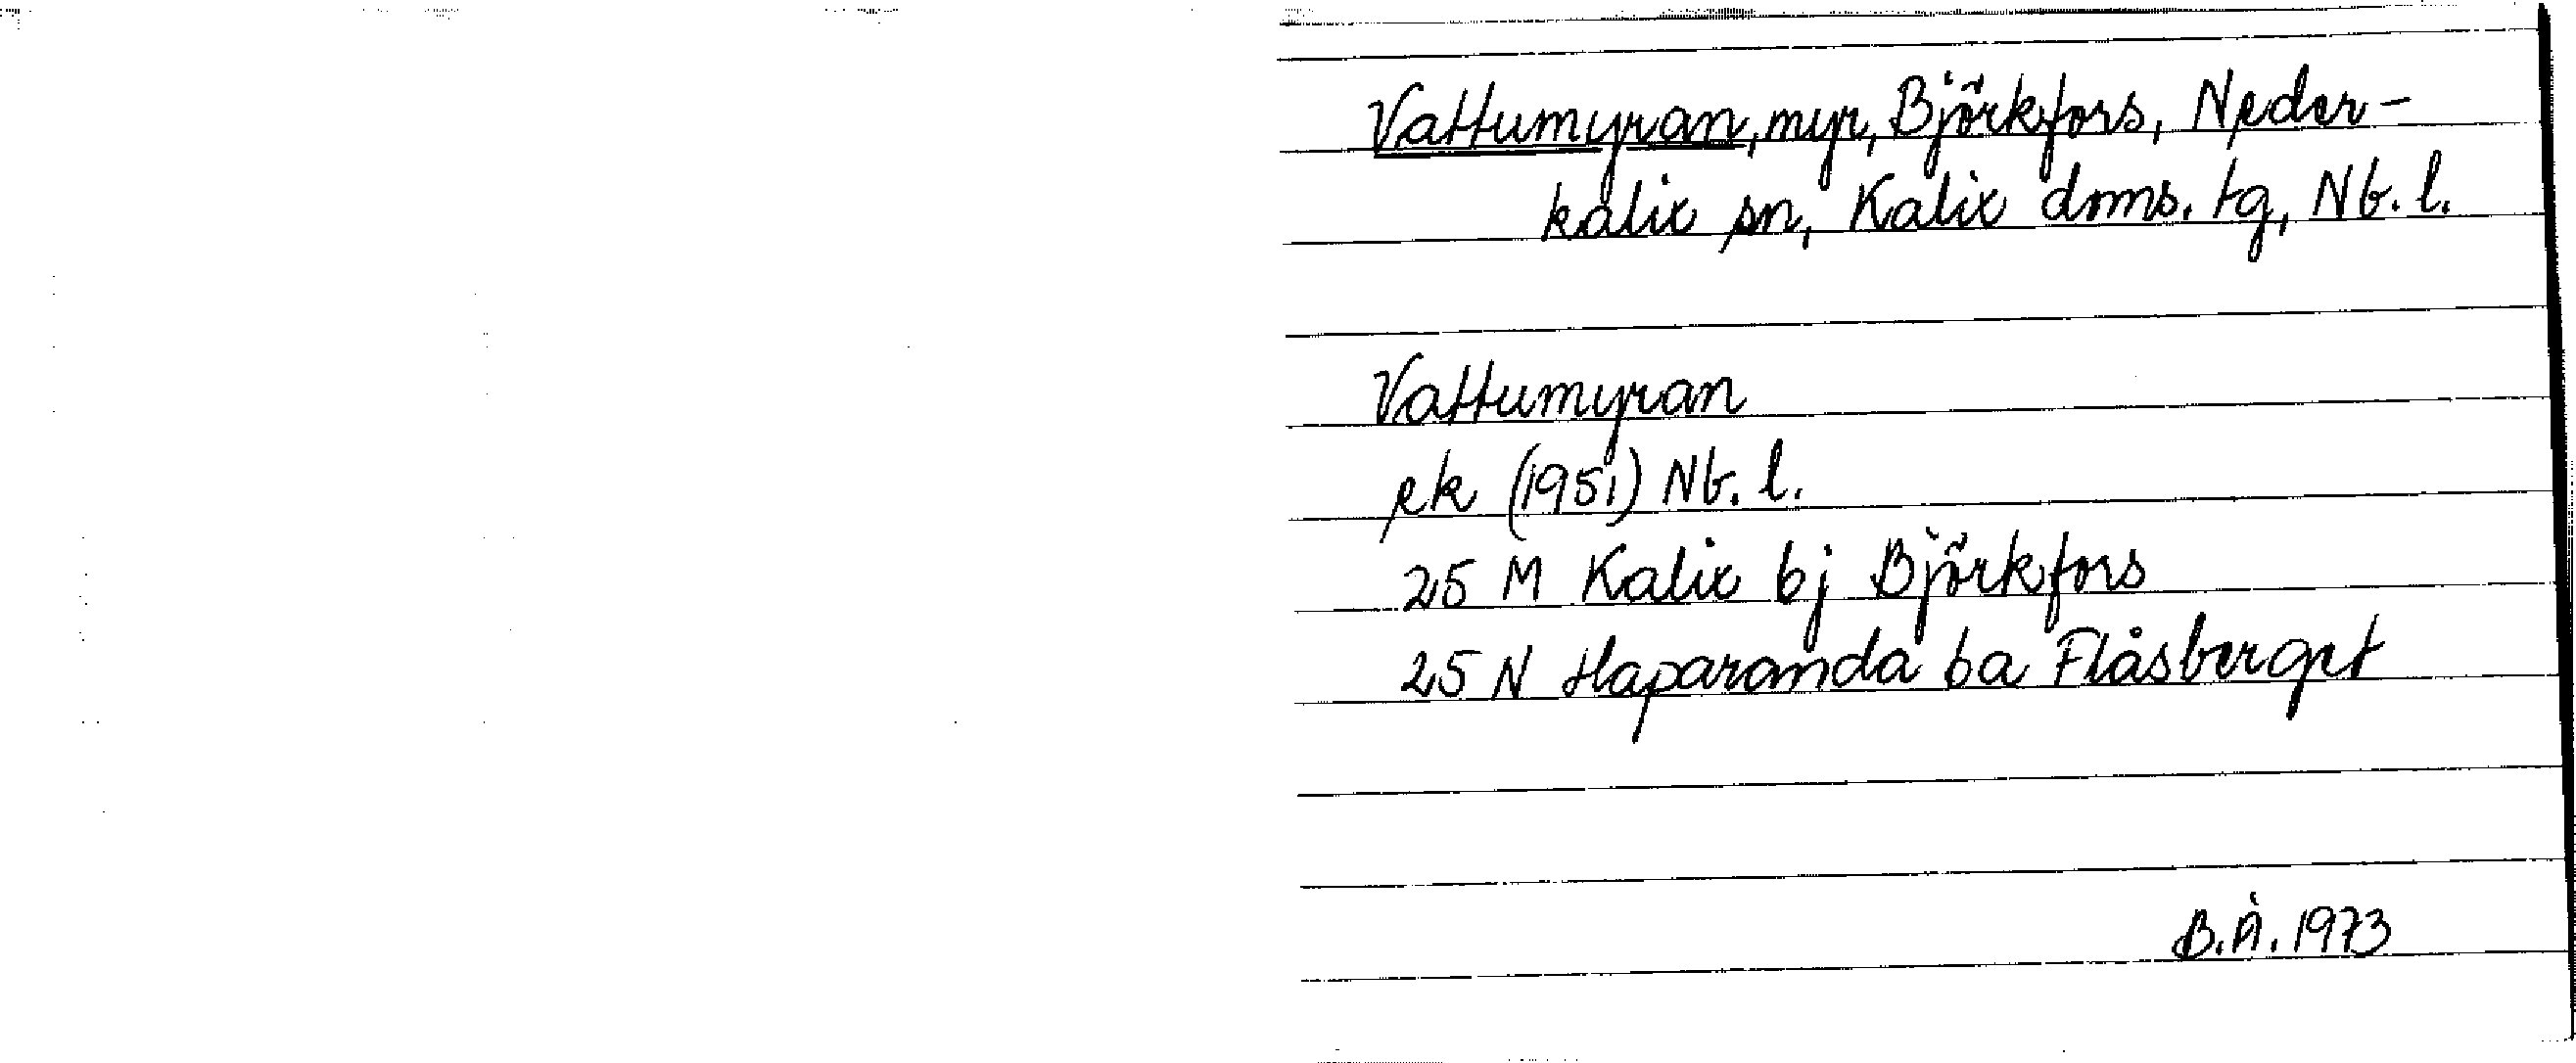 Vattumyran, myr, Björkfors, Neder-
kalix sn, Kalix doms. tg, Nb. l.
Vattumyran
ek (1951) Nb. l.
25 M Kalix bj Björkfors
25 N Haparanda ba Flåsberget
B.Å. 1973